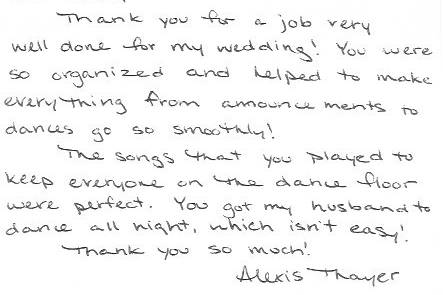 Thank you for a job very
well done for my wedding! You were
so organized and helped to make
everything from announcements to
dances go so smoothly!
The songs that you played to
keep everyone on the dance floor
were perfect. You got my husband to
dance all night, which isn't easy!
Thank you so much!
Alexis Thayer